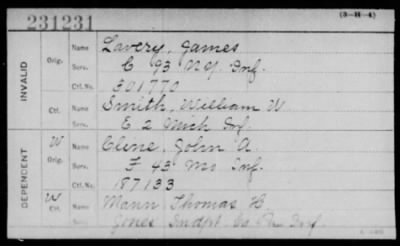 231231
(3-H-4)
INVALID
Orig.
Name Lavery, James
Serv. C 93 N.Y. Inf.
Ctf. No. 301770
Ctf.
Name Smith, William W
Serv. E 2 Mich Inf
DEPENDENT
W
Orig.
Name Cline, John A.
Serv. F 43 Mo Inf.
Ctf. No. 187133
W
Ctf.
Name Mann Thomas H.
Jones Indpt Co Pa Inf